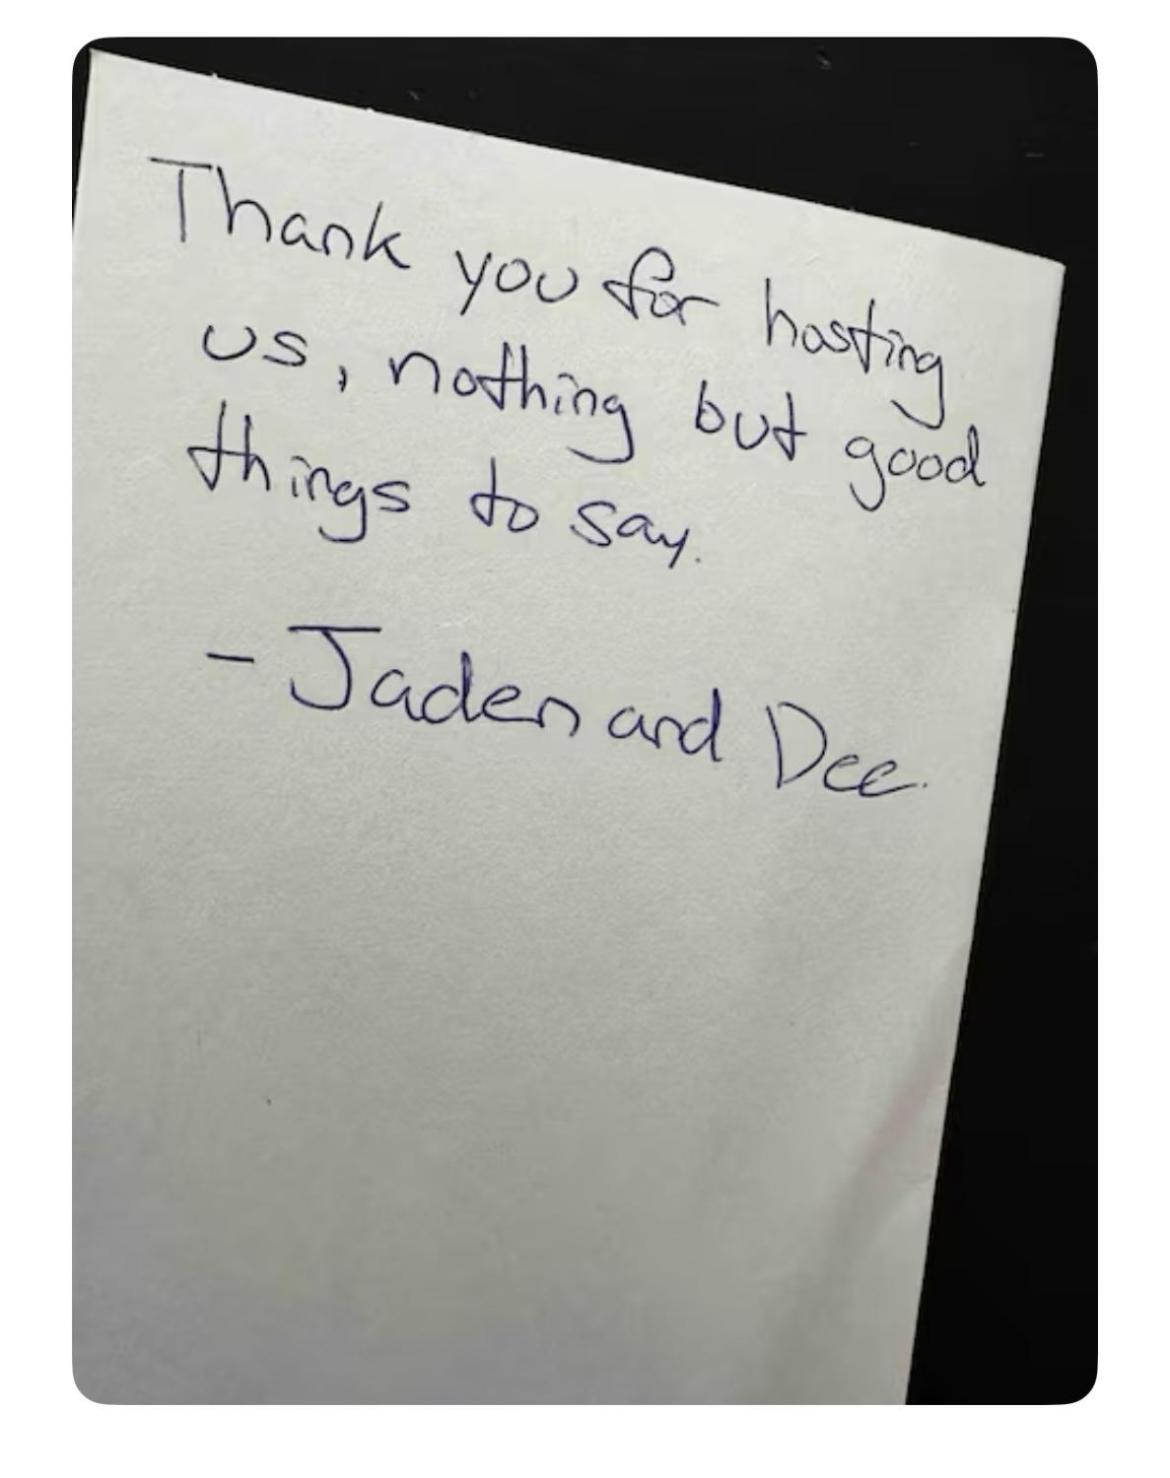 Thank you for hosting
us, nothing but good
things to say.
- Jaden and Dee.